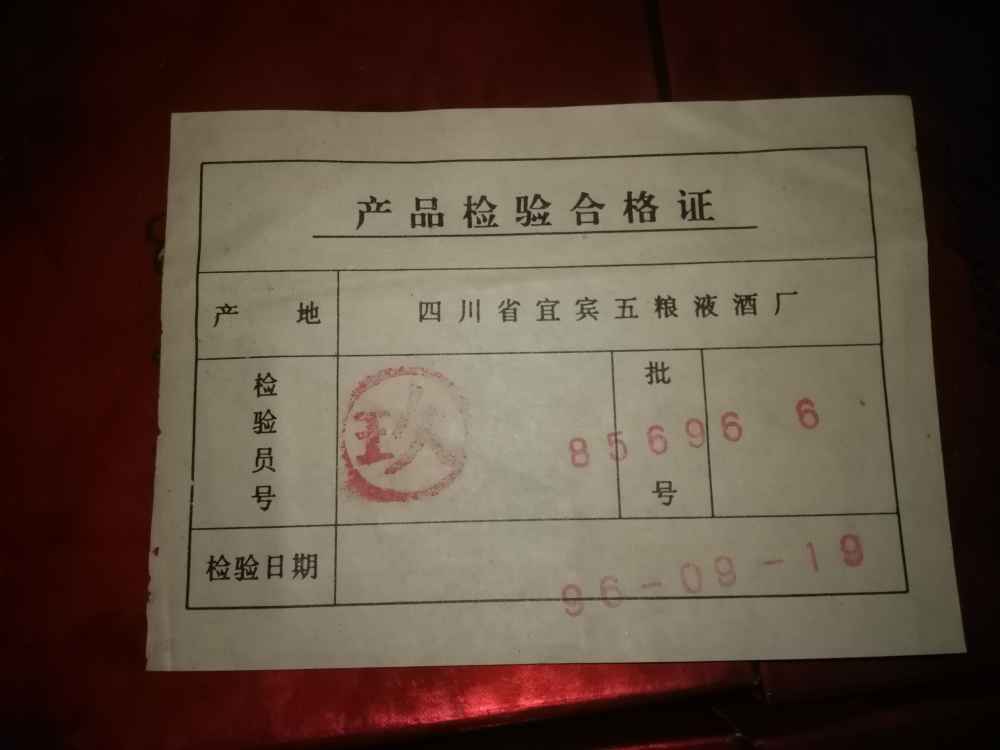 产品检验合格证
产 地 四川省宜宾五粮液酒厂
检验员号 玖 批号 85696 6
检验日期 96-09-19